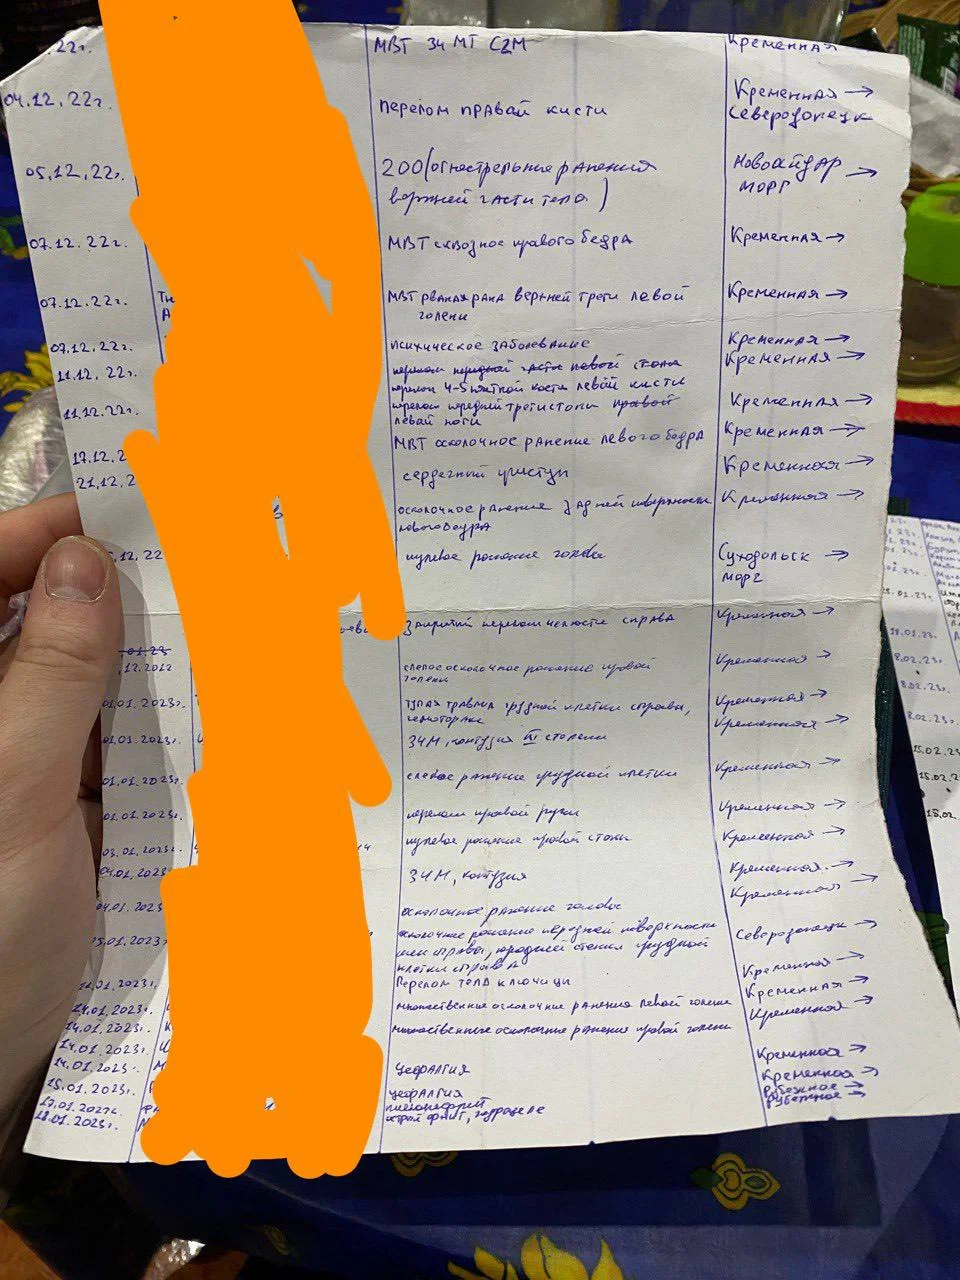 22г. МВТ ЗЧ МТ СГМ Кременная
04.12.22г. перелом правай кисти Кременная →
Северодонецк
05.12.22г. 200 (огнестрельние ранения Новоайдар →
верхней части тела) морг
07.12.22г. МВТ сквозное правого бедра Кременная →
07.12.22г. МВТ рваная рана верхней трети левой Кременная →
голени
07.12.22г. психическое заболевание Кременная →
11.12.22г. перелом передней части левой стопа Кременная →
перелом 4-5 кости левай кисти
11.12.22г. перелом передней трети стопи правой Кременная →
левай ноги
17.12.2 МВТ осколочное ранение левого бедра Кременная →
21.12.2 сердечный приступ Кременная →
осколочное ранение задней поверхности Кременная →
левого бедра
.12.22 пулевое ранение голови Суходольск →
морг
закритий перелом челюсти справа Кременная →
01.23
.12.2012 слепое осколочное ранение правой Кременная →
голени
01.01.2023г. тупая травма грудной клетки справа, Кременная →
Кременная →
01.01.2023г. ЗЧМ, контузия III степени
01.01.2023г. слепое ранение грудной клетки Кременная →
01.01.2023г. перелом правой руки Кременная →
03.01.2023г. пулевое ранение правой стопи Кременная →
04.01.2023г. ЗЧМ, контузия Кременная →
Кременная →
04.01.2023 осколочное ранение голови
осколочное ранение передней поверхности Северодонецк →
5.01.2023г шеи справа, передней стенки грудной
клетки справа
.01.2023г. Перелом тела ключици Кременная →
14.01.2023г. множественние осколочние ранения левой голени Кременная →
14.01.2023г. множественные осколочние ранения правой голени Кременная →
14.01.2023г.
14.01.2023г. цефалгия Кременная →
15.01.2023г. цефалгия Кременная →
17.01.2022г. пиелонефрит Рубежное →
18.01.2023г. гидроцеле Рубежное →